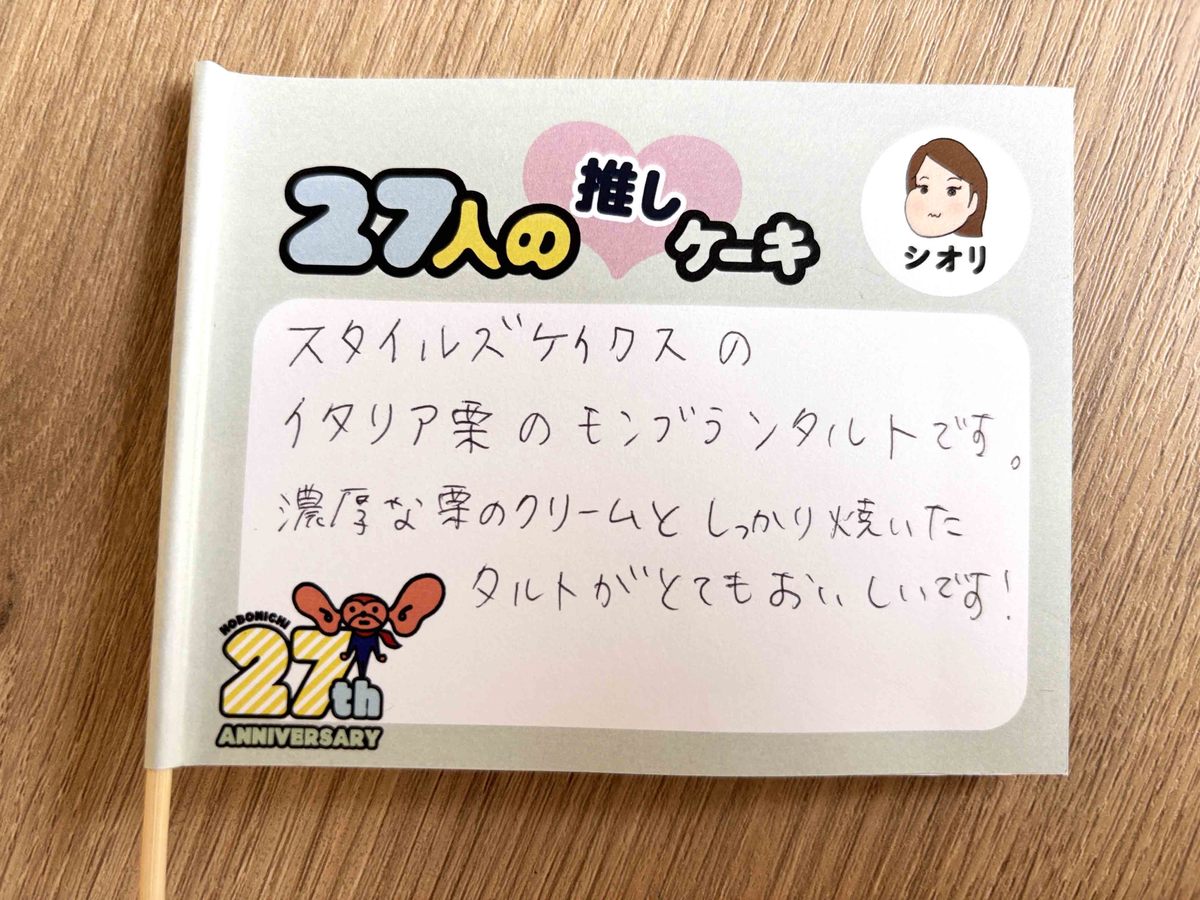 27人の推しケーキ
シオリ
スタイルズケイクスの
イタリア栗のモンブランタルトです。
濃厚な栗のクリームとしっかり焼いた
タルトがとてもおいしいです!
HOBONICHI
27th
ANNIVERSARY